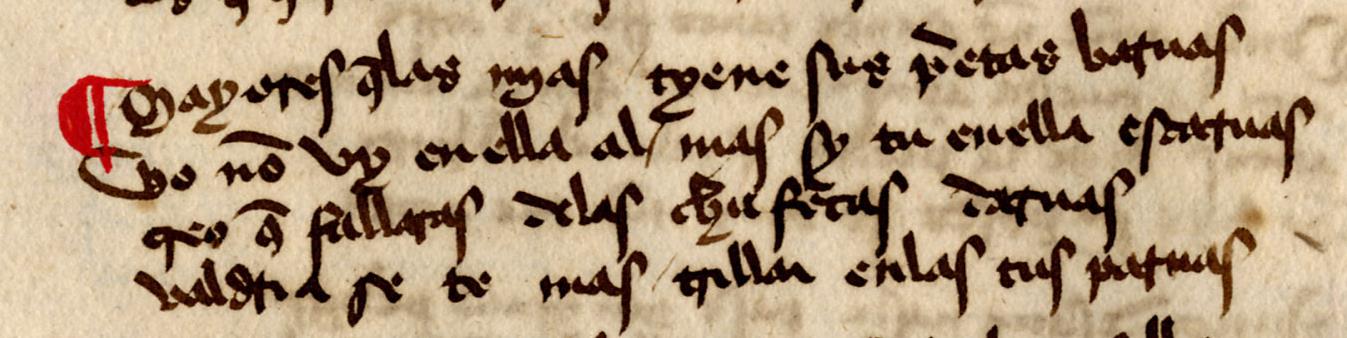 ¶ Mayores q̃las mjas tyene sus p̃etas baruas
yo nõ vy en ella al mas sy tu enella escaruas
creo q̃ fallaras delas chufetas daruas
valdria se te mas trillar enlas tus paruas